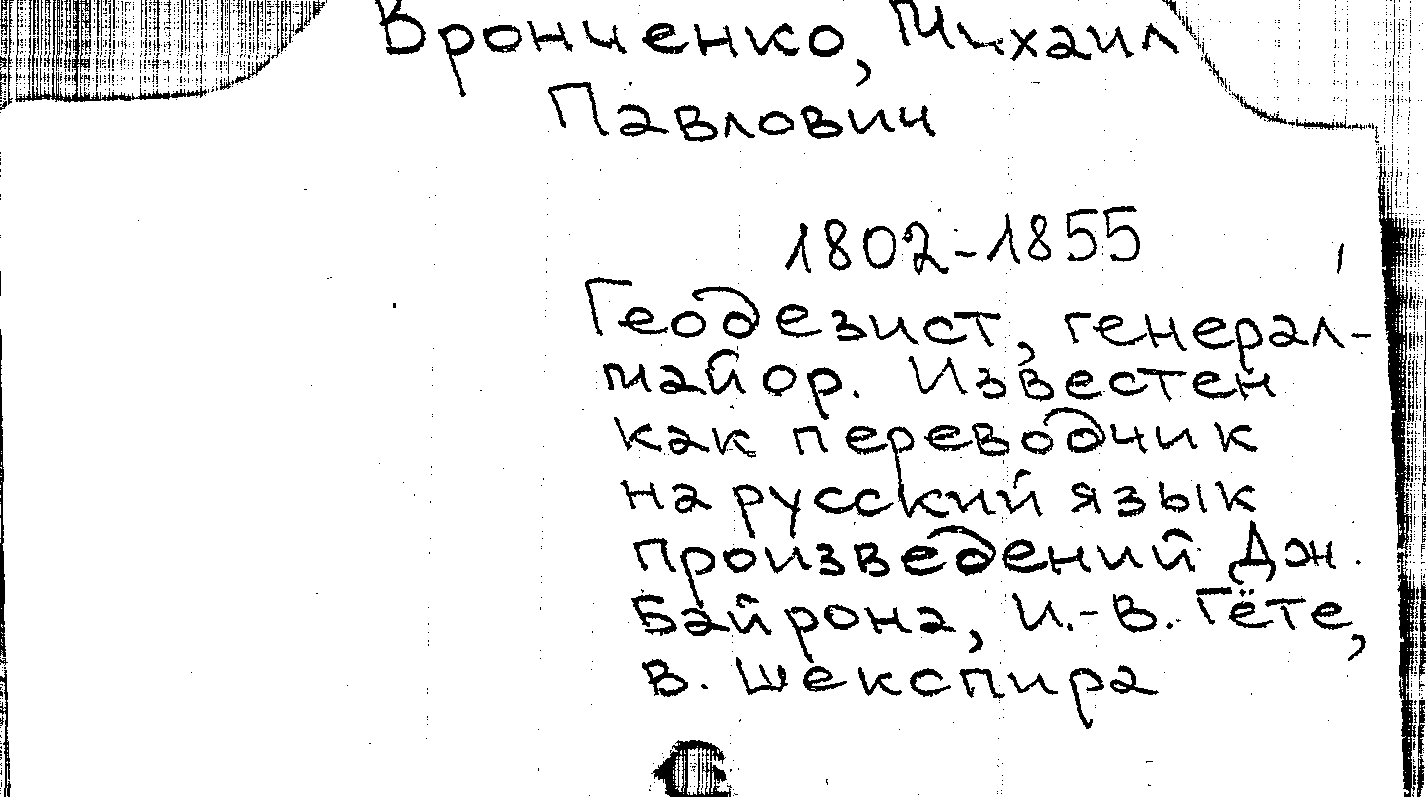 Вронченко, Михаил
Павлович
1802-1855
Геодезист, генерал-
майор. Известен
как переводчик
на русский язык
произведений Дж.
Байрона, И.-В. Гёте,
В. Шекспира